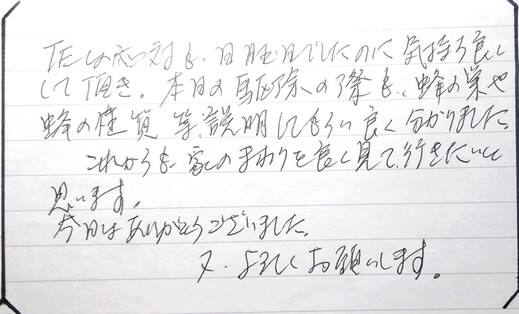 TELの応対も、日曜日でしたのに気持ち良く
して頂き。本日の駆除の際も、蜂の巣や
蜂の性質等、説明してもらい良く分かりました。
これからも、家のまわりを良く見て、行きたいと
思います。
今日はありがとうございました。
又、よろしくお願いします。